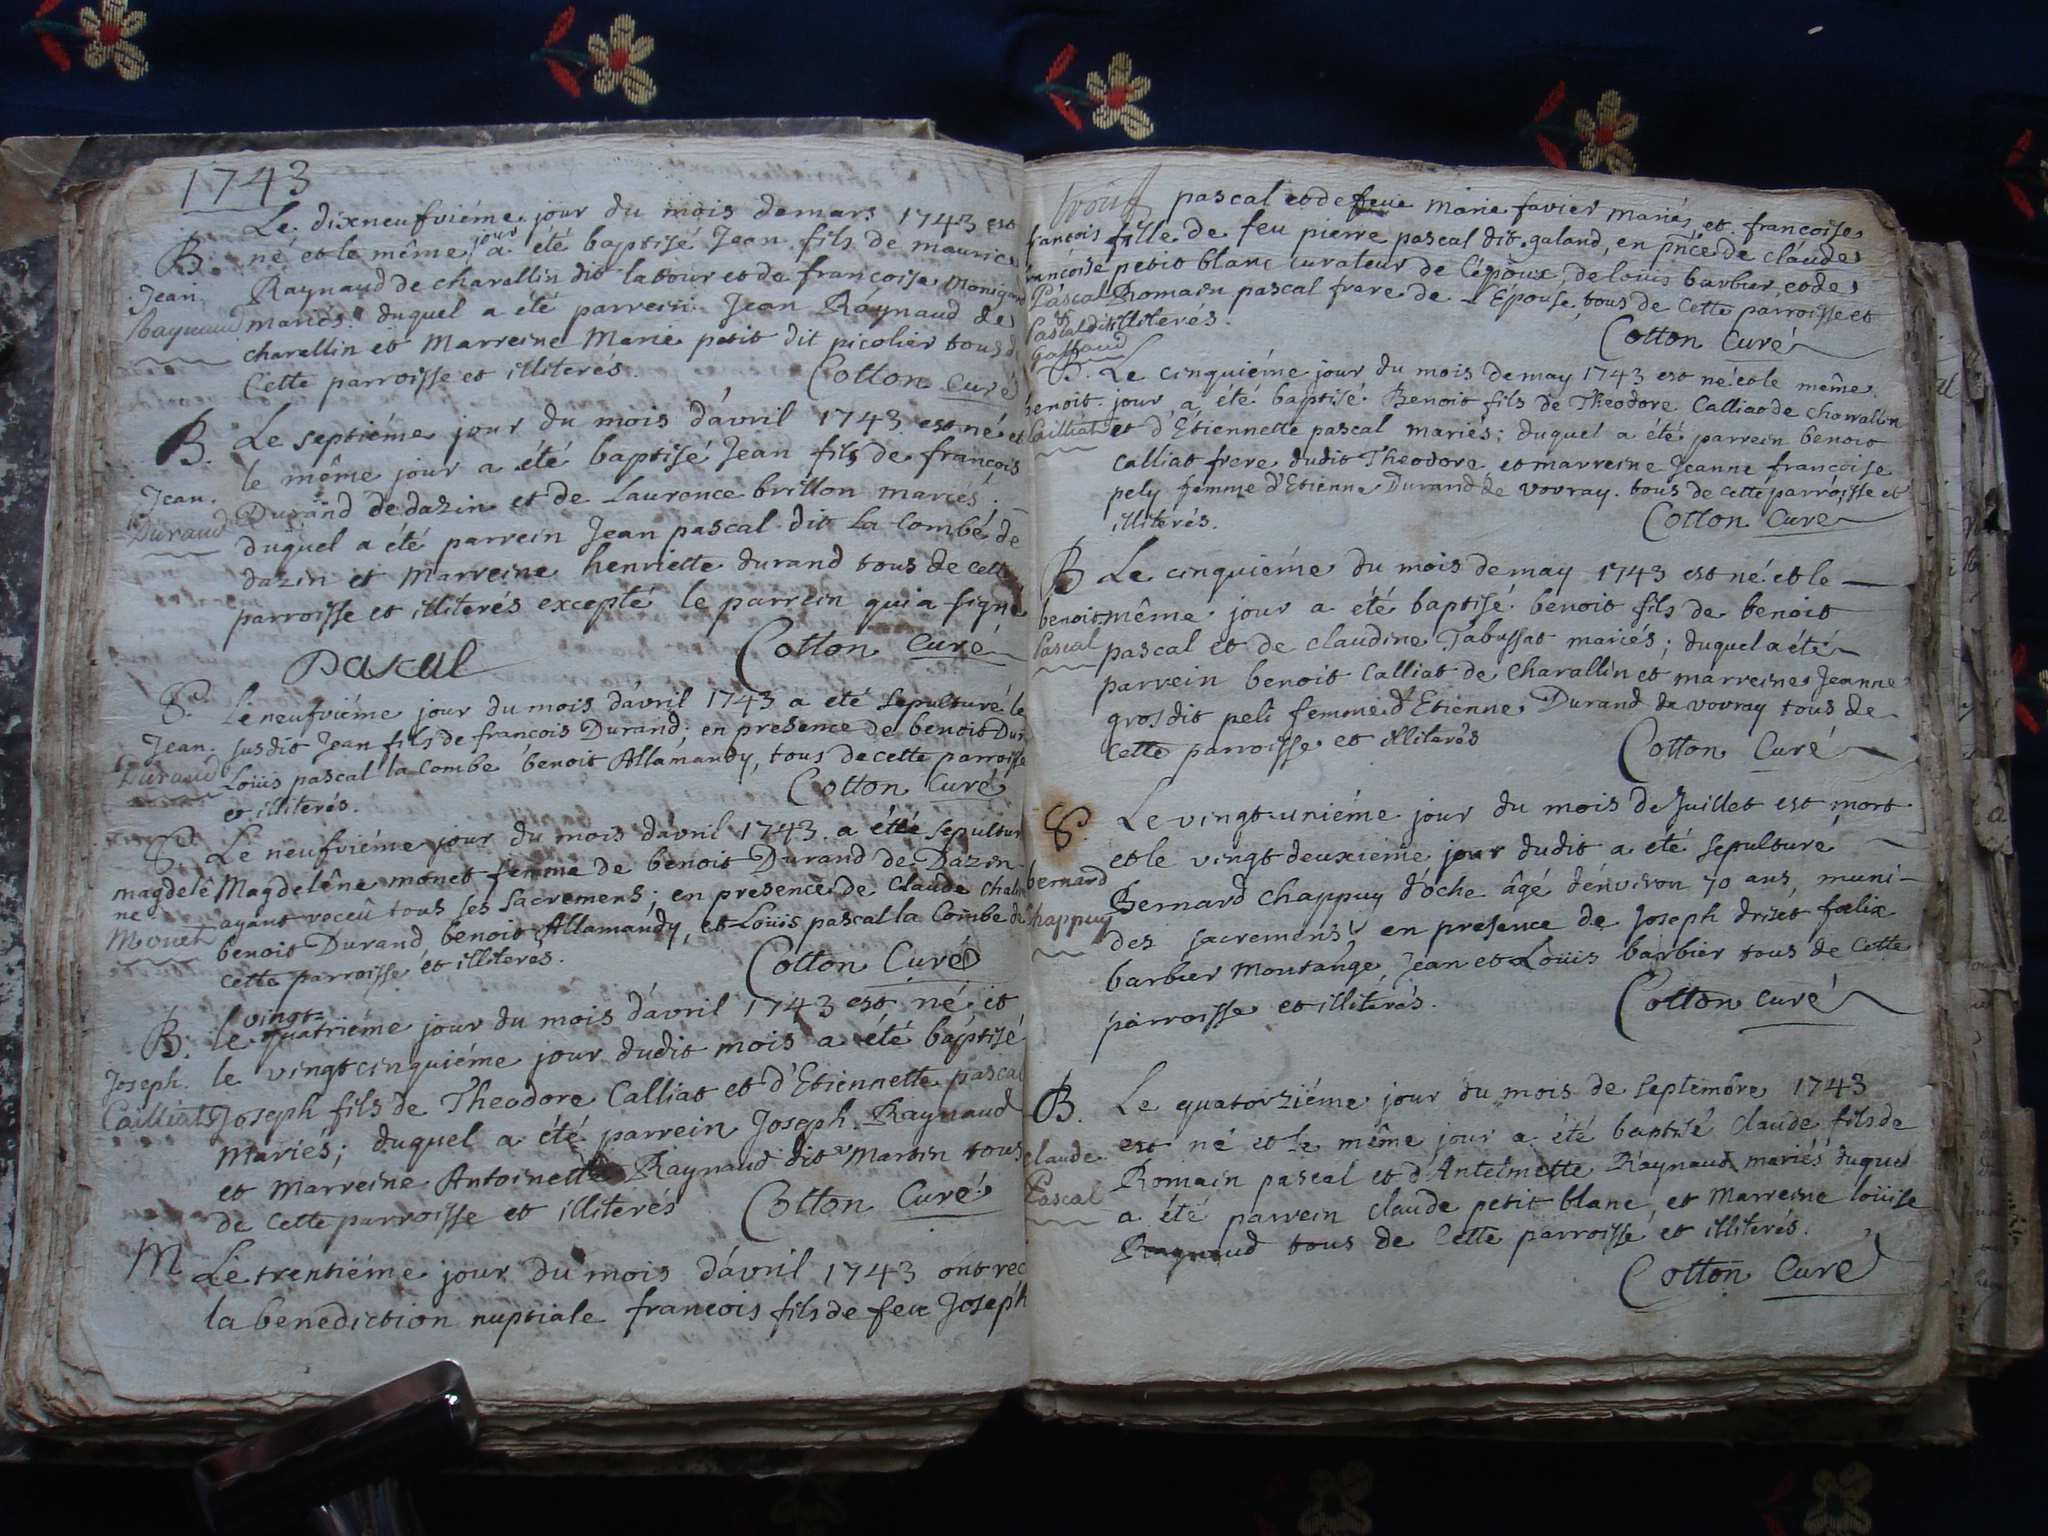 1743
Le dixneufviéme jour du mois de mars 1743 est
B. né et le même jour a été baptisé Jean fils de maurice
Jean Raynaud de charallin dit latour et de francoise
Raynaud mariés duquel a été parrein Jean Raynaud de
charallin et Marreine Marie petit dit picolier tous d
Cette parroisse et illiterés.
Cotton Curé
B. Le septiéme jour du mois d'avril 1743 est né et
le même jour a été baptisé Jean fils de francois
Jean. Durand de dazin et de Laurence brillon mariés.
Durand duquel a été parrein Jean pascal dit La Combe de
dazin et Marreine henriette durand tous de cette
parroisse et illiterés excepté le parrein qui a signe
Pascal Cotton Curé
S. Le neufviéme jour du mois d'avril 1743 a été sepulturé le
Jean. susdit Jean fils de francois Durand; en presence de benoit Dur
Durand Loüis pascal la combe benoit Allamandy, tous de cette parroisse
et illiterés. Cotton Curé
S. Le neufviéme jour du mois d'avril 1743 a été sepultur
magdelê Magdelêne monet femme de benoit Durand de Dazin
ne ayant receü tous ses sacremens; en presence de Claude
Monet benoit Durand benoit Allamandy, et Loüis pascal la Combe de
cette parroisse et illiteres. Cotton Curé
vingt
B. le quatriéme jour du mois d'avril 1743 est né et
Joseph. le vingtcinquiéme jour dudit mois a été baptisé
Cailliat Joseph fils de Theodore Calliat et d'Etiennette pascal
Mariés; duquel a été parrein Joseph Raynaud
et Marreine Antoinette Raynaud dit Martin tous
de cette parroisse et illiterés Cotton Curé
M Le trentiéme jour du mois d'avril 1743 ont rec
la benediction nuptiale francois fils de feu Joseph
pascal et de feue Marie favier mariés et francoise
francois fille de feu pierre pascal dit galand, en pnce de claude
francoise petit blanc curateur de l'époux, de louis barbier, et de
Pascal Romain pascal frere de L'Epouse, tous de Cette parroisse et
& Pascal dit illiteres.
Galland Cotton Curé
B. Le cinquiéme jour du mois de may 1743 est né et le même
benoit. jour a été baptisé Benoit fils de Theodore Calliat de charallin
Cailliat et d'Etiennette pascal mariés; duquel a été parrein benoit
Calliat frere dudit Theodore et marreine Jeanne françoise
pely femme d'Etienne Durand de vovray. tous de cette parroisse et
illiterés. Cotton Curé
B Le cinquiéme du mois de may 1743 est né et le
benoit même jour a été baptisé benoit fils de benoit
Pascal pascal et de claudine Tabussat mariés; duquel a été
parrein benoit Calliat de Charallin et marreine Jeanne
gros dit peli femme d'Etienne Durand de vovray tous de
cette parroisse et illiterés Cotton Curé
S. Le vingt uniéme jour du mois de Juillet est mort
et le vingt deuxieme jour dudit a été sepulturé
bernard Bernard Chappuy d'oche âgé d'environ 70 ans, muni
Chappuy des sacremens, en presence de Joseph drizet foelix
barbier Montange, Jean et Loüis barbier tous de Cette
parroisse et illitérés. Cotton Curé
B. Le quatorziéme jour du mois de septembre 1743
claude est né et le même jour a été baptisé Claude fils de
Pascal Romain pascal et d'Antelmette Raynaud mariés duquel
a été parrein claude petit blanc, et Marreine loüise
Raynaud tous de Cette parroisse et illiterés.
Cotton Curé